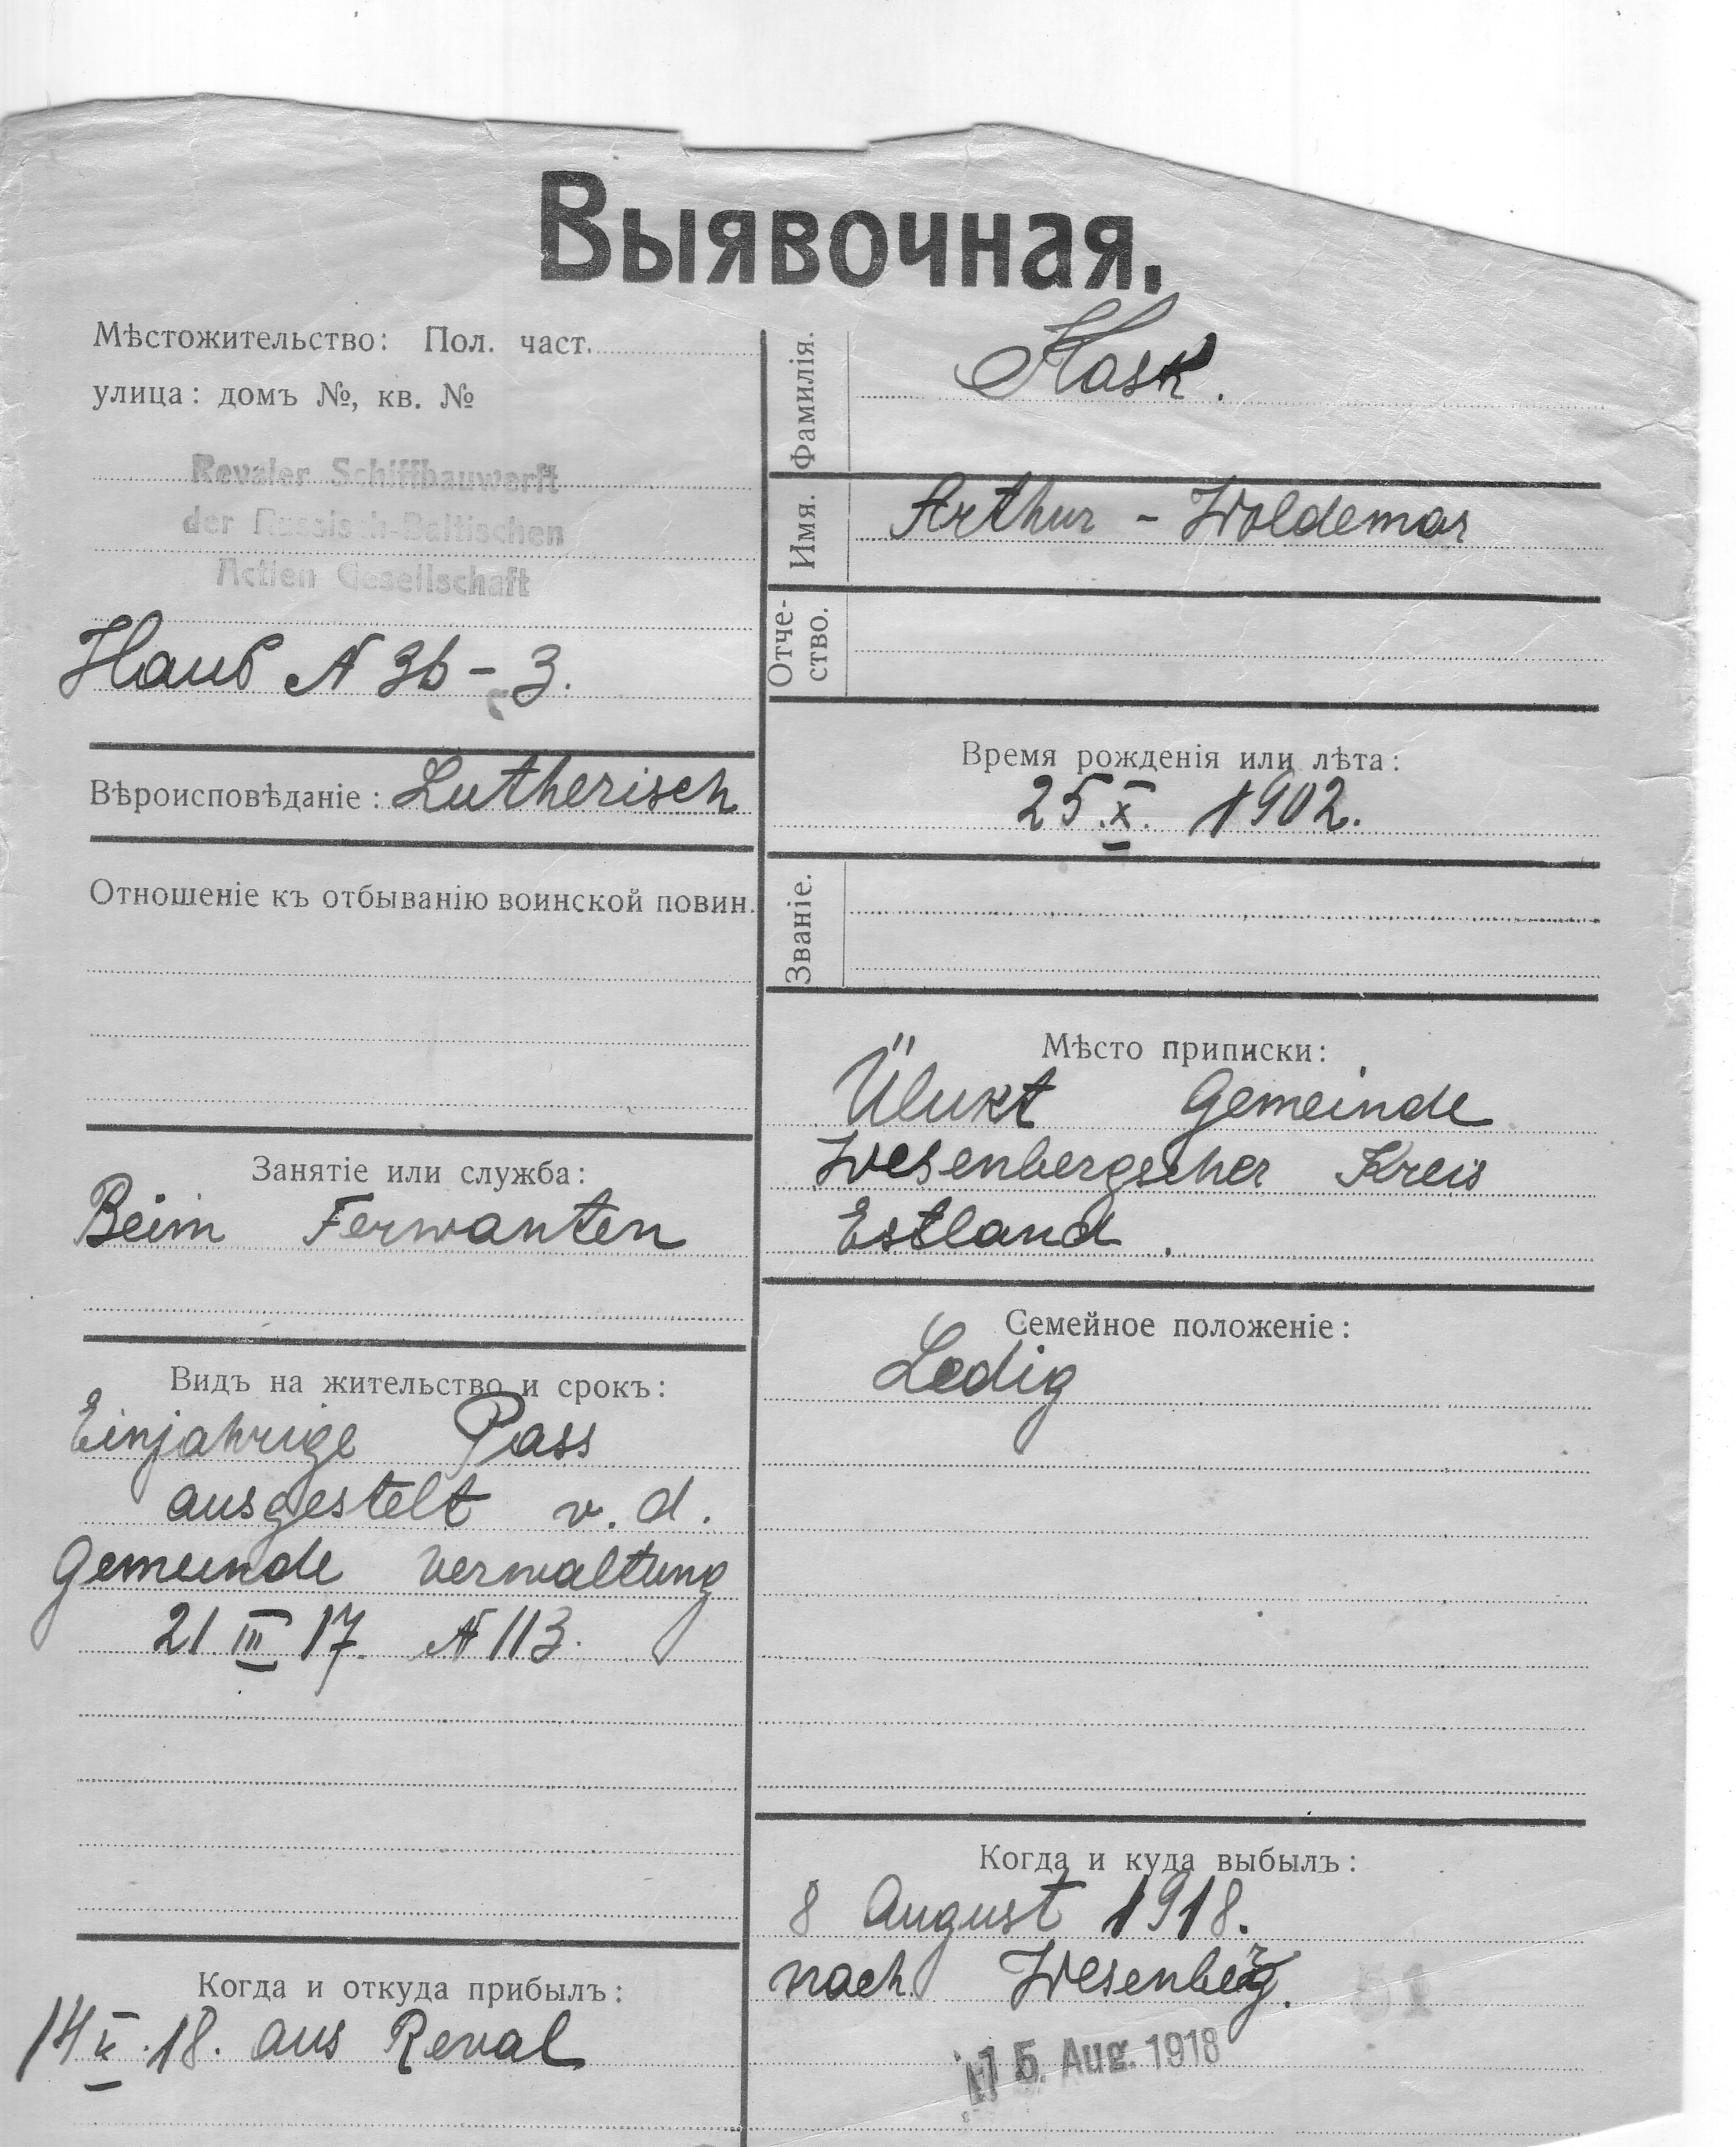 Выявочная.
Мѣстожительство: Пол. част.
улица: домъ №, кв. №
Revaler Schiffbauwerft
der Russisch-Baltischen
Actien Gesellschaft
Haus № 36 - 3.
Вѣроисповѣданіе: Lutherisch
Отношеніе къ отбыванію воинской повин.
Занятіе или служба:
Beim Ferwanten
Видъ на жительство и срокъ:
Einjahrige Pass
ausgestelt v. d.
Gemeinde Verwaltung
21 III 17. № 113.
Когда и откуда прибылъ:
18. aus Reval
Фамилія.
Kask.
Имя.
Arthur - Woldemar
Отче-
ство.
Время рожденія или лѣта:
25.X. 1902.
Званіе.
Мѣсто приписки:
Gemeinde
Wesenbergscher Kreis
Estland.
Семейное положеніе:
Ledig
Когда и куда выбылъ:
8 August 1918.
nach Wesenberg.
51
15. Aug. 1918